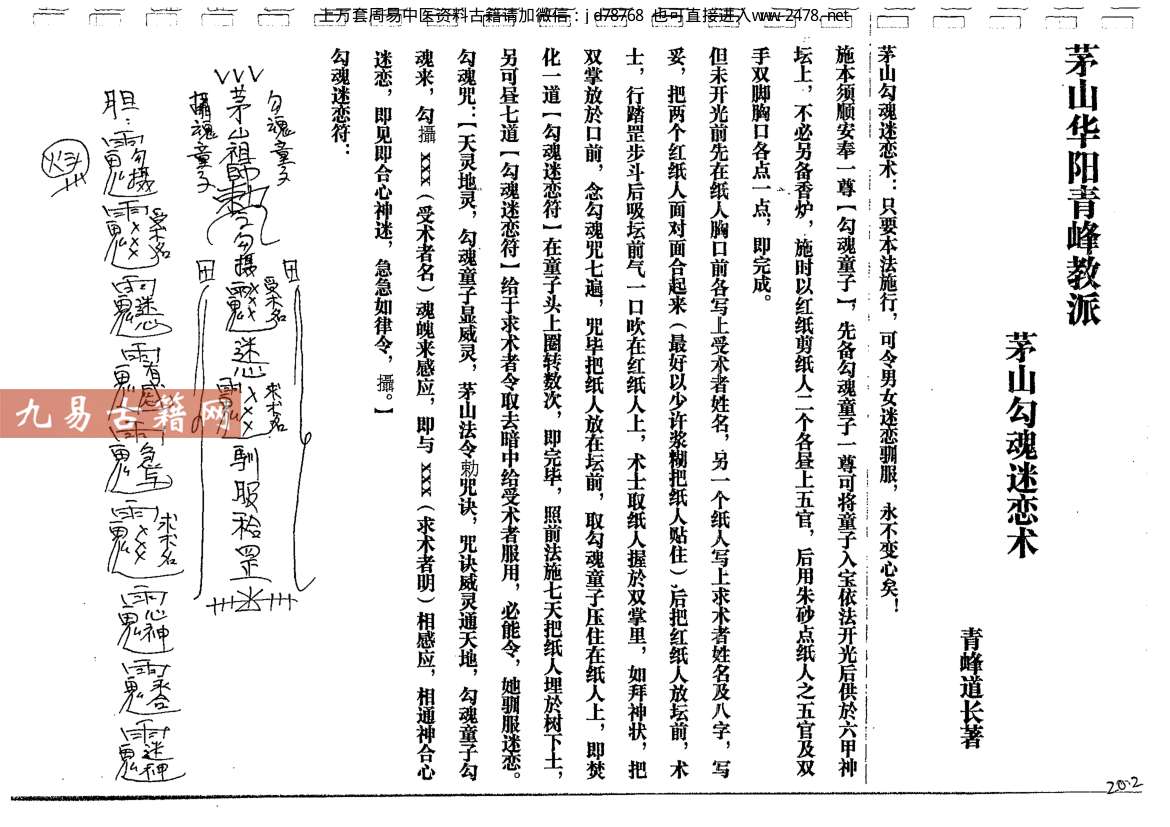 上万套周易中医资料古籍请加微信：jd78768 也可直接进入www.2478.net
茅山华阳青峰教派
茅山勾魂迷恋术
青峰道长著
茅山勾魂迷恋术：只要本法施行，可令男女迷恋驯服，永不变心矣！
施本须顺安奉一尊【勾魂童子】，先备勾魂童子一尊可将童子入宝依法开光后供於六甲神
坛上，不必另备香炉，施时以红纸剪纸人二个各昼上五官，后用朱砂点纸人之五官及双
手双脚胸口各点一点，即完成。
但未开光前先在纸人胸口前各写上受术者姓名，另一个纸人写上求术者姓名及八字，写
妥，把两个红纸人面对面合起来（最好以少许浆糊把纸人贴住）、后把红纸人放坛前，术
士，行踏罡步斗后吸坛前气一口吹在红纸人上，术士取纸人握於双掌里，如拜神状，把
双掌放於口前，念勾魂咒七遍，咒毕把纸人放在坛前，取勾魂童子压住在纸人上，即焚
化一道【勾魂迷恋符】在童子头上圈转数次，即完毕，照前法施七天把纸人埋於树下土，
另可昼七道【勾魂迷恋符】给于求术者令取去暗中给受术者服用，必能令，她驯服迷恋。
勾魂咒：【天灵地灵，勾魂童子显威灵，茅山法令勅咒诀，咒诀威灵通天地，勾魂童子勾
魂来，勾攝 xxx（受术者名）魂魄来感应，即与 xxx（求术者明）相感应，相通神合心
迷恋，即见即合心神迷，急急如律令，攝。】
勾魂迷恋符：
勾魂童子
茅山祖師勅令勾摄
受术名
xxx
迷恋
求术名
xxx
馴服
罡
攝魂童子
胆：
勾摄
受术名
xxx
迷恋
有感
求术名
xxx
心神
迷神
九易古籍网
20-2